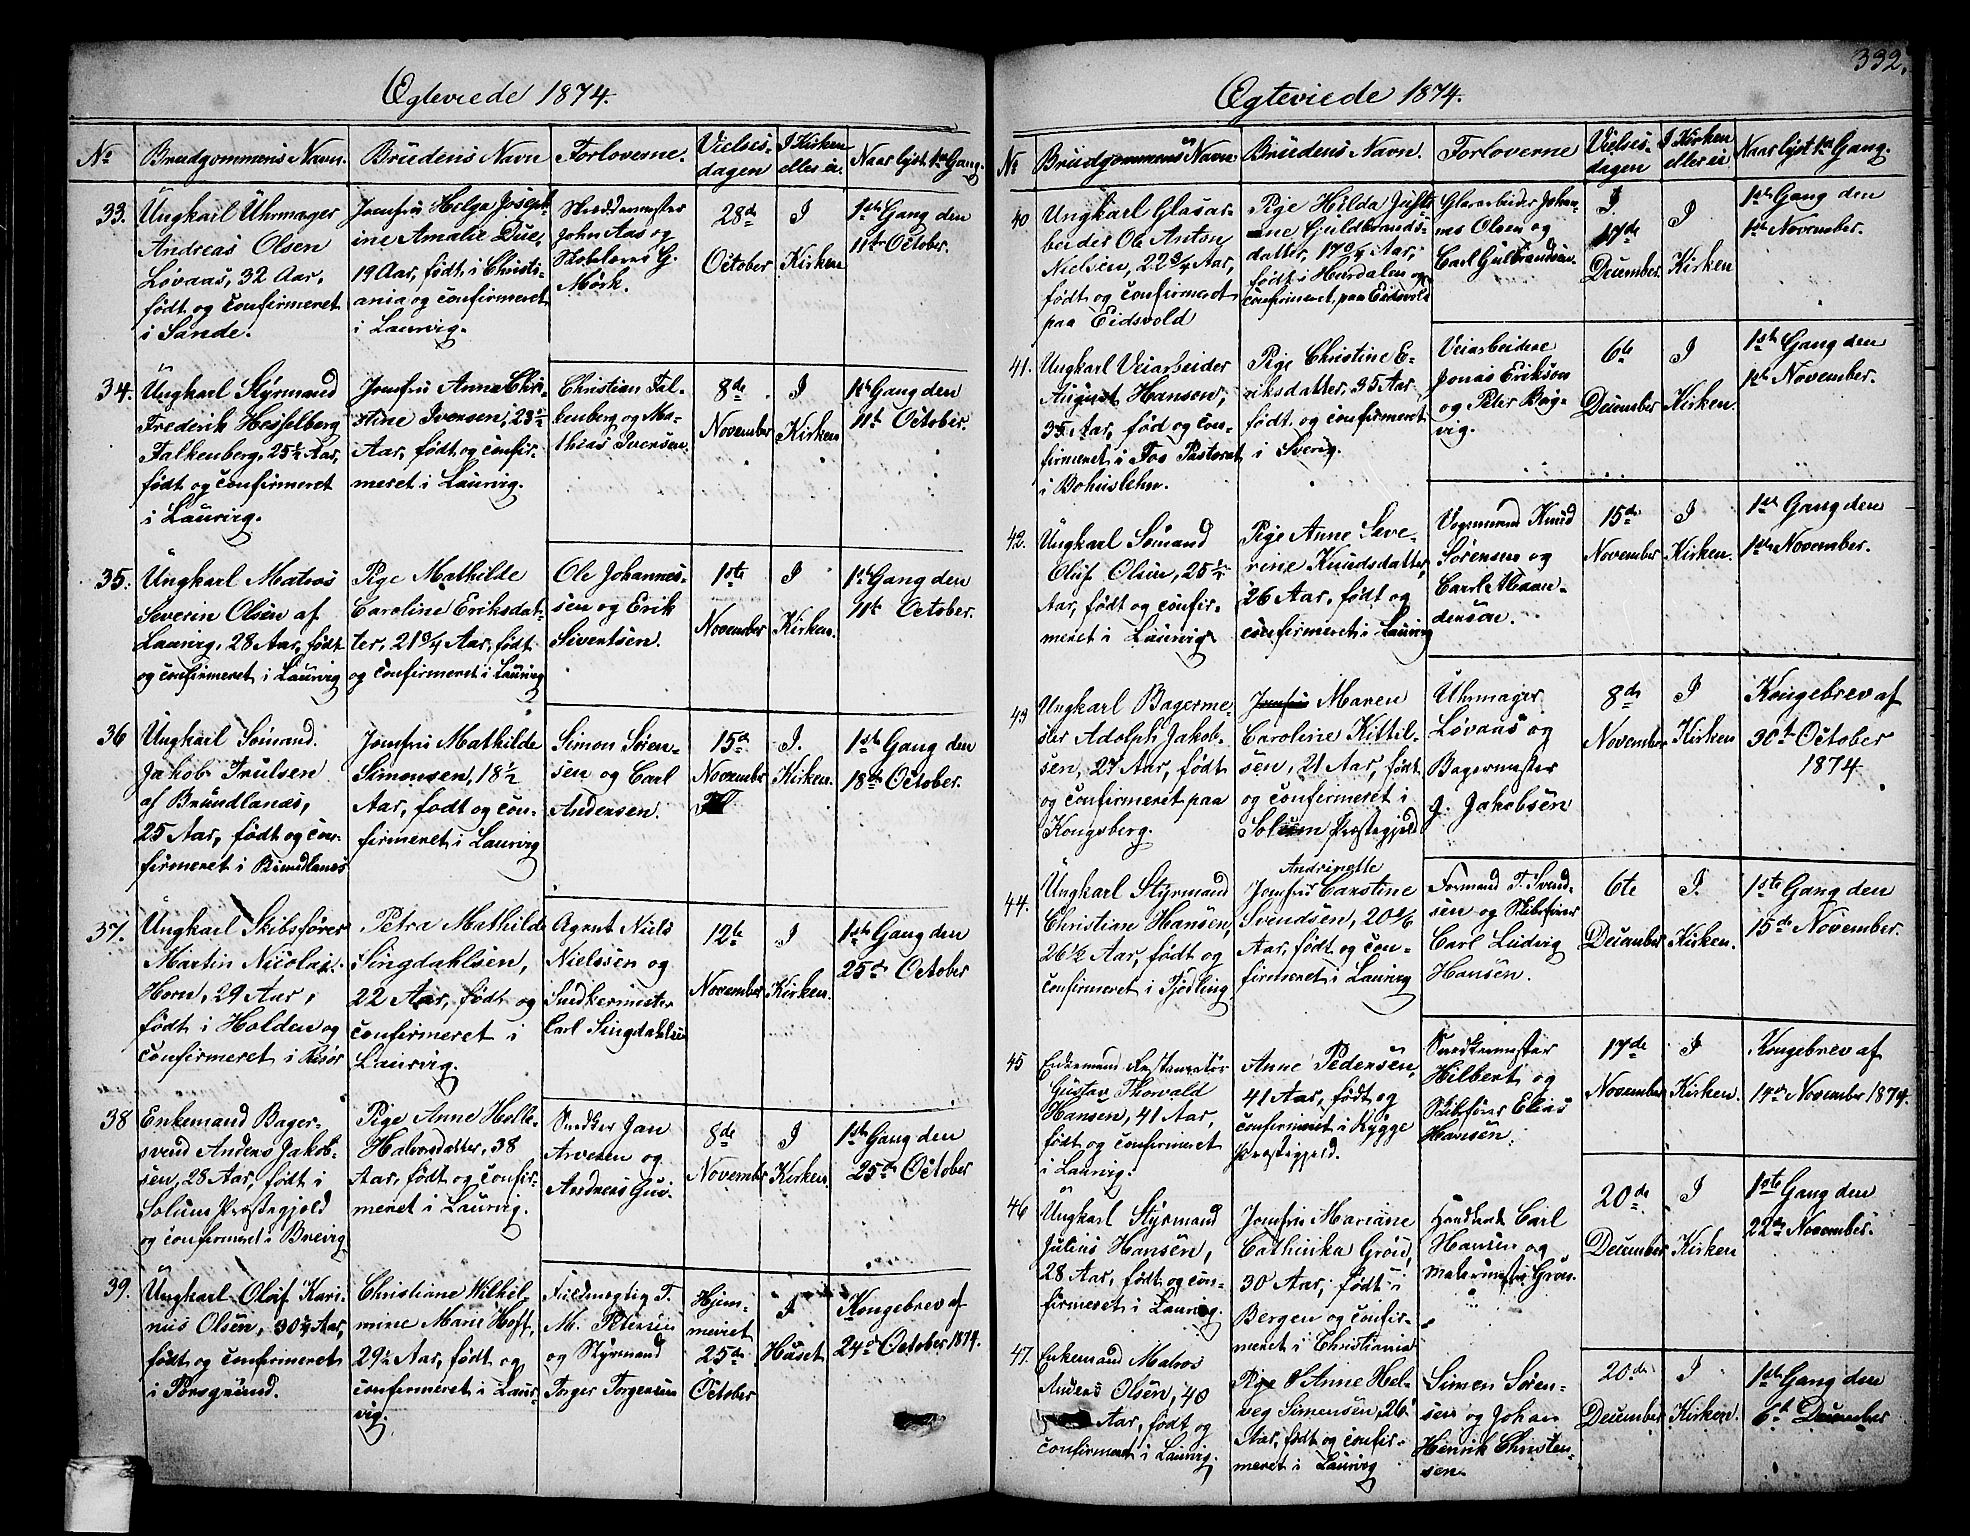 332.
Ægteviede 1874.
No
Brudgommens Navn.
Brudens Navn
Forloverne.
Vielses-
dagen
I Kirken
eller ei.
Naar lyst 1ste Gang.
33.
Ungkarl Uhrmager
Andreas Olsen
Løvaas, 32 Aar,
født og confirmeret
i Sande.
Jomfru Helga Joseph-
ine Amalie Due,
19 Aar, født i Christi-
ania og confirmeret
i Laurvig.
Skræddermester
John Aas og
Skobelaves G.
Mørk.
28de
October
I
Kirken
1ste Gang den
11te October.
34.
Ungkarl Styrmand
Frederik Hesselberg
Falkenberg, 25½ Aar,
født og confirmeret
i Laurvig.
Jomfru Anna Chri-
stine Iversen, 23½
Aar, født og confir-
meret i Laurvig.
Christian Fal-
kenberg og Ma-
thias Iversen.
8de
November
I
Kirken
1ste Gang den
11te October.
35.
Ungkarl Matros
Severin Olsen af
Laurvig, 28 Aar, født
og confirmeret i Laurvig
Pige Mathilde
Caroline Eriksdat-
ter, 21¾ Aar, født
og confirmeret i Laurvig
Ole Johannes-
sen og Erik
Sivertsen.
1ste
November
I
Kirken.
1ste Gang den
11te October.
36
Ungkarl Sømand.
Jakob Trulsen
af Brundlanæs,
25 Aar, født og con-
firmeret i Brundlanæs
Jomfru Mathilde
Simonsen, 18½
Aar, født og con-
firmeret i Laurvig
Simon Søren-
sen og Carl
Andersen.
15de
November
I.
Kirken.
1ste Gang den
18de October.
37.
Ungkarl Skibsfører
Martin Nicolai
Horn, 29 Aar,
født i Holden og
confirmeret i Risør
Petra Mathilde
Singdahlsen,
22 Aar, født og
confirmeret i
Laurvig.
Agent Niels
Nielssen og
Snedkermester
Carl Singdahlsen
12te
November
I
Kirken.
1ste Gang den
25de October
38
Enkemand Bager-
svend Anders Jakob-
sen, 28 Aar, født i
Solum Præstegjeld
og confirmeret i Brevig
Pige Anne Helle-
Halvorsdatter, 38
Aar, født og confir-
meret i Laurvig.
Snedker Jan
Arvesen og
Andreas
8de
November
I
Kirken
1ste Gang den
25de October
39.
Ungkarl Olaf Kari-
nius Olsen, 30¼ Aar,
født og confirmeret
i Porsgrund.
Christiane Wilhel-
mine Marie Hoft,
29½ Aar, født og
confirmeret i Laur-
vig.
Fuldmægtig T.
M. Petersen
og Styrmand
Torger Torgersen
Hjem-
meviet
25de
October
I
Huset
Kongebrev af
24de October 1874.
Ægteviede 1874.
No
Brudgommens Navn
Brudens Navn.
Forloverne
Vielses-
dagen
I Kirken
eller ei
Naar lyst 1ste Gang.
40
Ungkarl Glasar-
beider Ole Anton
Nielsen, 22¾ Aar,
født og confirmeret
paa Eidsvold
Pige Hilda Justi-
ne Guldbrands-
datter, 17¾ Aar,
født i Hurdalen og
confirmeret paa Eidsvold
Glasarbeider Johan-
nes Olsen og
Carl Gulbrandsen.
I.
17de
December
I
Kirken
1ste Gang den
1ste November.
41.
Ungkarl Veiarbeider
August Hanson,
35 Aar, fød og con-
firmeret i Fos Pastorat
i Bohuslehn.
Pige Christine E-
riksdatter, 35 Aar
født og confirmeret
i Sverig.
Veiarbeidere
Jonas Erikson
og Peter Bag-
vig.
6te
December
I
Kirken.
1ste Gang den
1ste November.
42.
Ungkarl Sømand
Oluf Olsen, 25½
Aar, født og confir-
meret i Laurvig.
Pige Anne Seve-
rine Knudsdatter,
26 Aar, født og
confirmeret i Laurvig
Vognmand Knud
Sørensen og
Carl Alexan-
dersen.
15de
November
I
Kirken.
1ste Gang den
1ste November.
43
Ungkarl Bagerme-
ster Adolph Jakob-
sen, 27 Aar, født
og confirmeret paa
Kongsberg.
Jomfru Maren
Caroline Kittil-
sen, 21 Aar, født
og confirmeret i
Solum Præstegjeld
Uhrmager
Løvaas og
Bagermester
J. Jakobsen
8de
November
I
Kirken
Kongebrev af
30te October
1874
44.
Ungkarl Styrmand
Christian Hansen,
26½ Aar, født og
confirmeret i Tjødling
Andrinette
Jomfru Carstine
Svendsen, 20 4/6
Aar, født og con-
firmeret i Laurvig
Formand T. Svend-
sen og Skibsfører
Carl Ludvig
Hansen.
6te
December
I.
Kirken.
1ste Gang den
15de November.
45
Enkemand Restauratør
Gustav Thorvald
Hansen, 41 Aar,
født og confirmeret
i Laurvig.
Anne Pedersen,
41 Aar, født og
confirmeret i Rygge
Præstegjeld.
Snedkermester
Hilbert og
Skibsfører Elias
Hansen.
17de
November
I
Kirken.
Kongebrev af
14de November 1874.
46
Ungkarl Styrmand
Julius Hansen,
28 Aar, født og con-
firmeret i Laurvig.
Jomfru Mariane
Cathinka Grøn,
30 Aar, født i
Bergen og confir-
meret i Christiania
Handlende Carl
Hansen og
Malermester Grøn.
20de
December
I
Kirken
1ste Gang den
22de November.
47.
Enkemand Matros
Anders Olsen, 40
Aar, født og
confirmeret i Laurvig.
Pige Anne Hel-
veg Simensen, 26
Aar, født og confir-
meret i Laurvig
Simen Søren-
sen og Johan
Henrik Christen-
sen.
20de
December
I
Kirken.
1ste Gang den
6te December